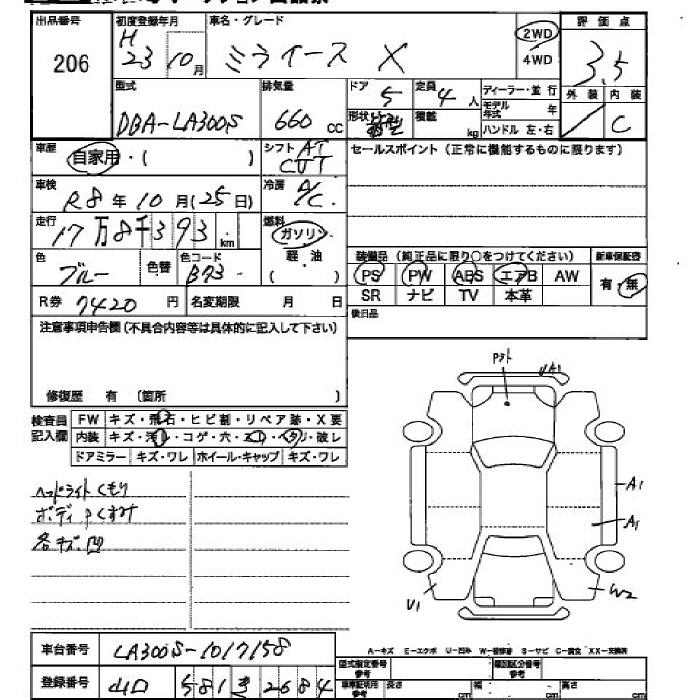 出品番号 初度登録年月 車名・グレード 評価点
206 H23 10月 ミライース X 2WD 3.5
4WD
外装 内装
型式 排気量 ドア 定員 ディーラー・並行
5 4人 モデル年式 年
DBA-LA300S 660 cc 形状 積載 kg ハンドル 左・右 C
車歴 シフト AT セールスポイント(正常に機能するものに限ります)
自家用・( ) CVT
車検 冷房
R8年10月(25日) A/C
走行 燃料
17万8千393 km ガソリン
色 色替 色コード 軽油 装備品(純正品に限り○をつけてください) 新車保証書
ブルー B73 ( ) PS PW ABS エアB AW 有・無
R券 7420円 名変期限 月 日 SR ナビ TV 本革
注意事項申告欄(不具合内容等は具体的に記入して下さい) 後日品
修復歴 有 〔箇所 〕
検査員 FW キズ・飛石・ヒビ割・リペア跡・X要
記入欄 内装 キズ・汚レ・コゲ・穴・スレ・ヘタリ・破レ
ドアミラー キズ・ワレ ホイール・キャップ キズ・ワレ
UA1
A1
A1
ヘッドライトくもり
ボディ
各キズ凹
U1 W2
車台番号 LA300S-1017158 A-キズ E-エクボ U-凹み W-補修跡 S-サビ C-腐食 XX-交換済
登録番号 山口 581 き 2684 型式指定番号 参考 類別区分番号 参考
車庫証明用 参考 長さ cm 幅 cm 高さ cm